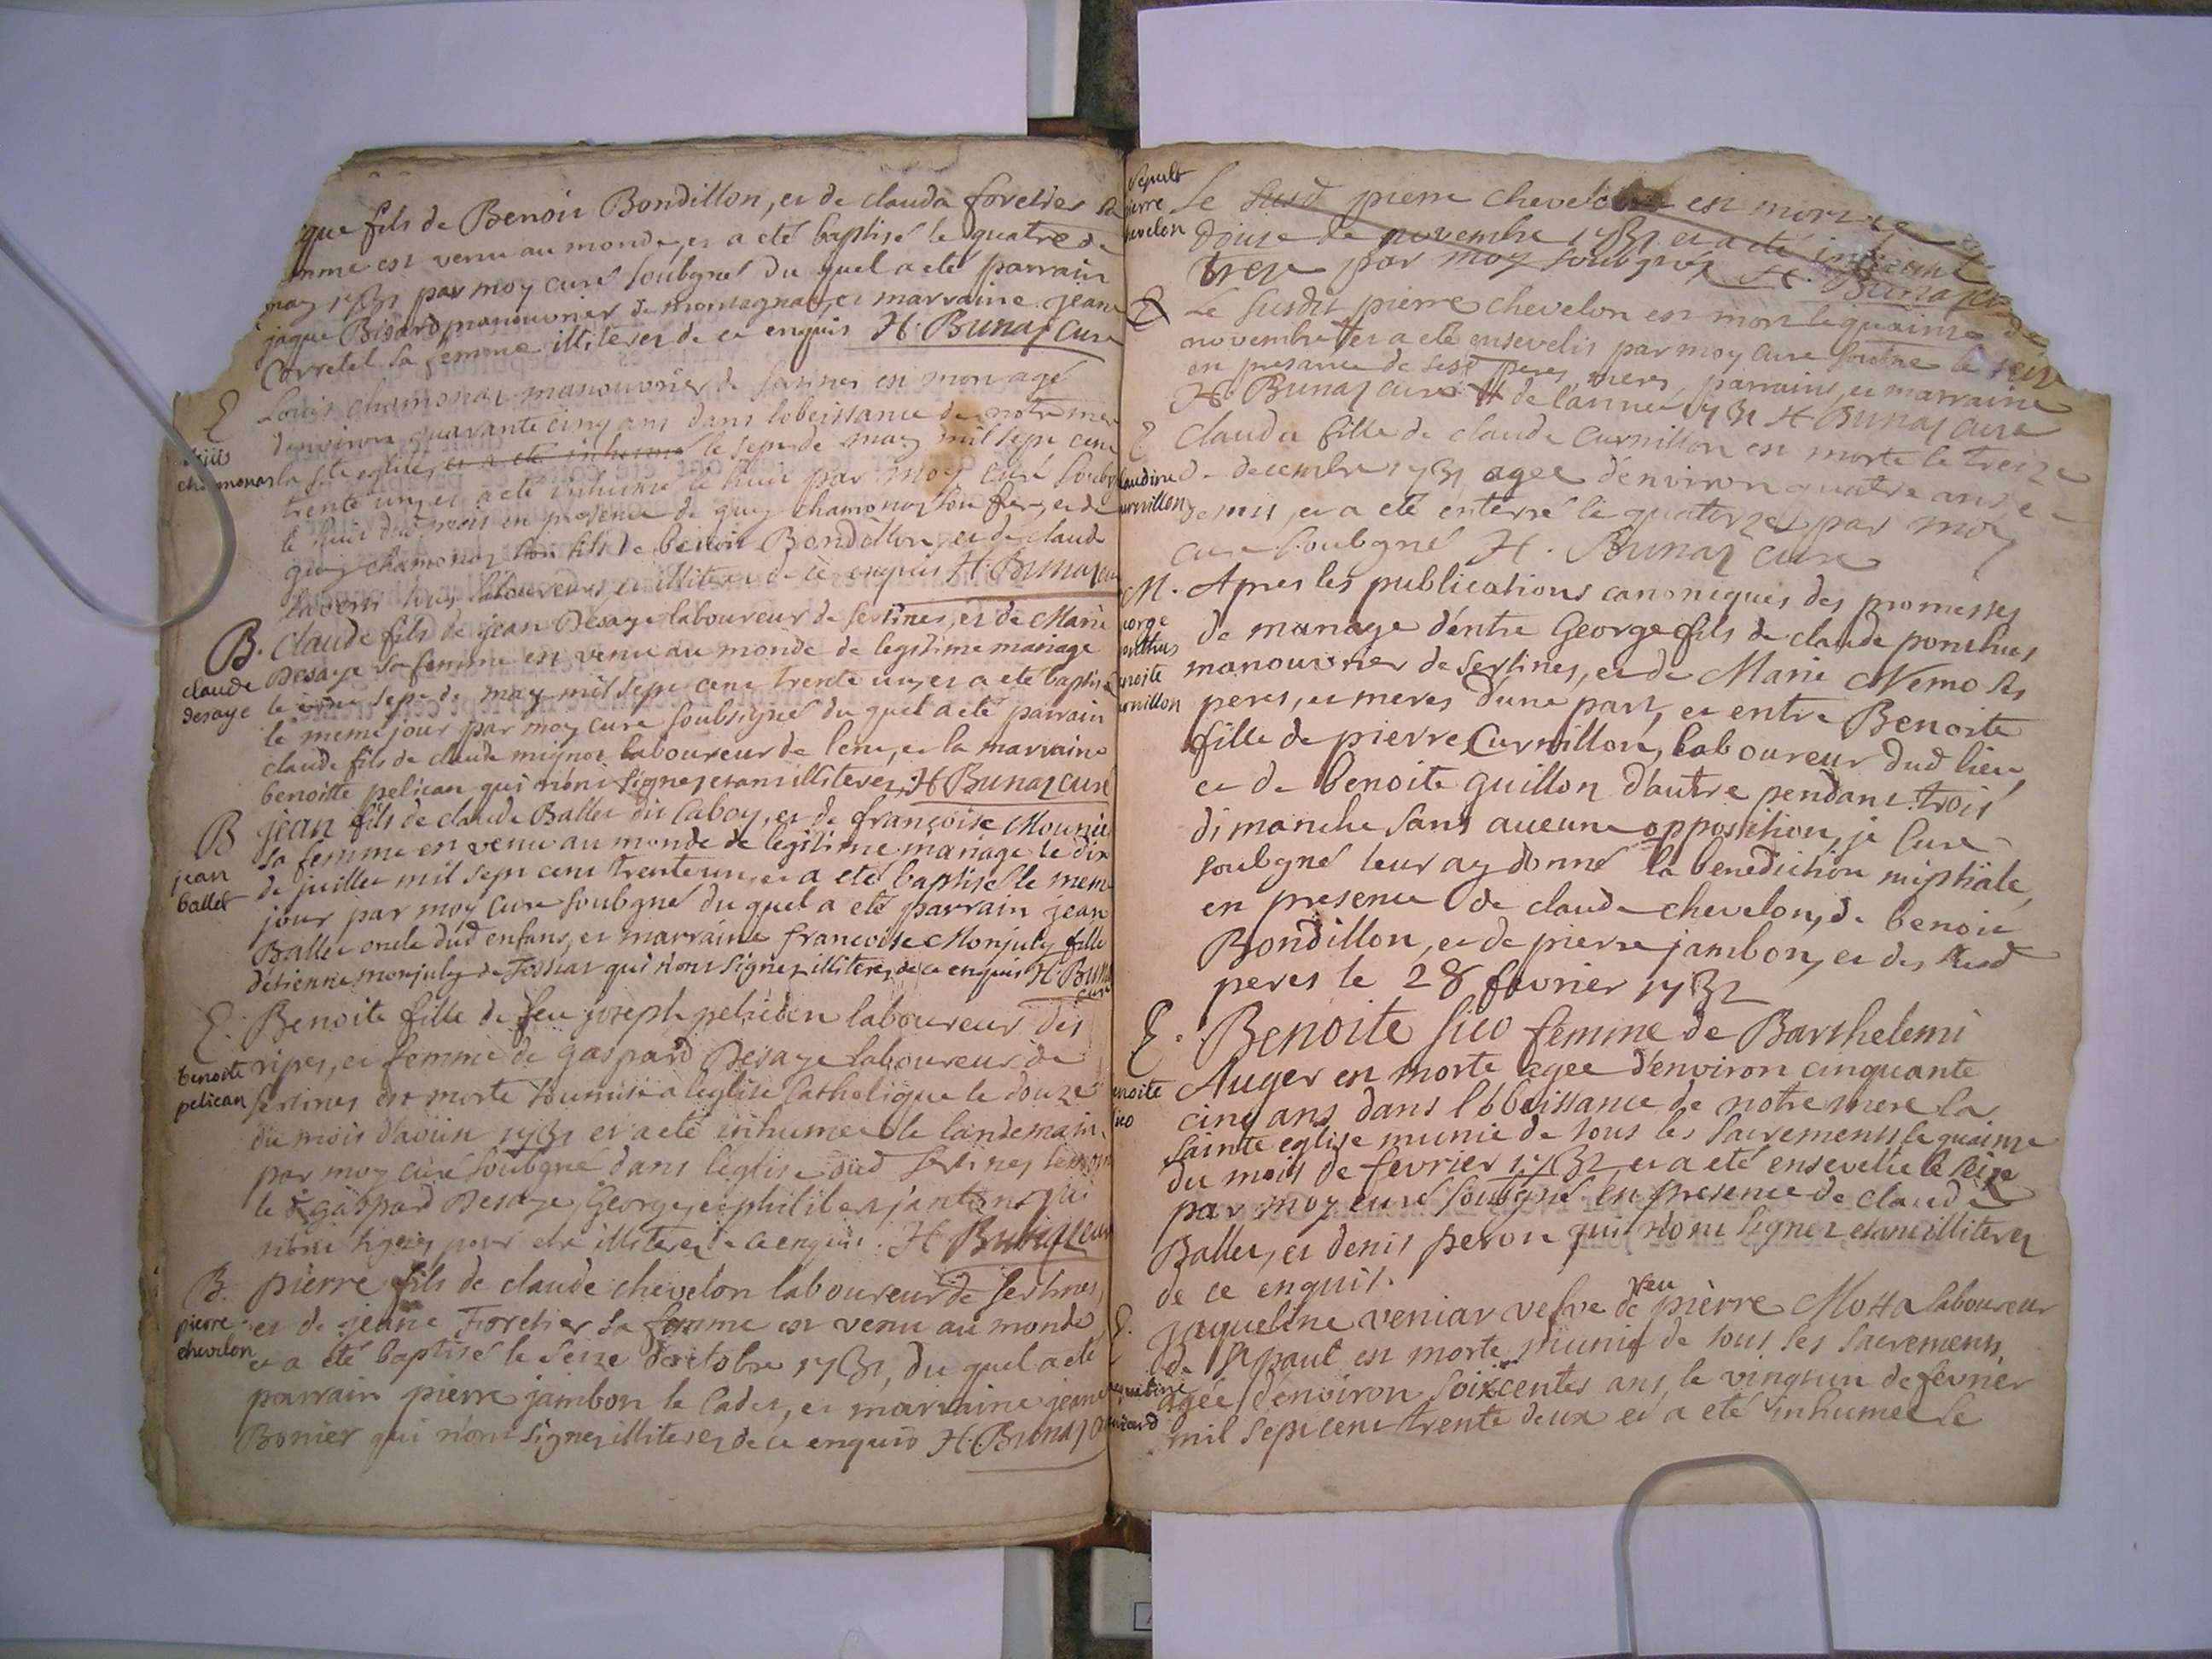 que fils de Benoit Bondillon, et de clauda foretier sa
mme est venu au monde, et a eté baptisé le quatre de
may 1731 par moy curé soubgné du quel a eté parrain
jaque Bisard manouvrier de montagnat, et marraine jeane
Corretel sa femme illiteres de ce enquis H. Bunaz curé
E Louis chamonaz manouvrier de sertines est mort agé
d'environ quarante cinq ans dans lobeissance de notre mere
la ste eglise, et a eté inhumé le sept de may mil sept cent
chamonaz
trente un, et a eté inhumé le huit par moy curé soubgné
le huit dud mois en presence de guy chamonaz son frere, et de
guy chamonaz son fils de benoit Bondillon, et de claude
tous laboureurs, et illiteres de ce enquis H. Bunaz cure
B. Claude fils de jean Desaye laboureur de sertines, et de Marie
claude desaye
Desaye sa femme est venu au monde de legitime mariage
le sept de may mil sept cent trente un, et a eté baptisé
le meme jour par moy curé soubsigné du quel a eté parrain
claude fils de claude mignot laboureur de lent, et la marraine
benoitte pelican qui n'ont signez etant illiteres, H Bunaz curé
B jean fils de claude Ballet du Caboy, et de françoise Mounier
jean ballet
sa femme est venu au monde de legitime mariage le dix
de juillet mil sept cent trente un, et a eté baptisé le meme
jour par moy curé soubgné du quel a eté parrain jean
Ballet oncle dud enfant, et marraine françoise Monjuly fille
d'etienne monjuly de Tossiat qui n'ont signez illiteres de ce enquis H. Bunaz
curé
E. Benoite fille de feu joseph pelician laboureur des
benoite pelican
ripes, et femme de gaspard Desaye laboureur de
sertines est morte soumise a leglise Catholique le douze
du mois d'aoust 1731 et a eté inhumée le landemain
par moy curé soubgné dans l'eglise dud sertines temoins
le gaspard Desaye, George, et philibert janton qui
n'ont signez pour etre illiteres de ce enquis. H Bunaz cure
B. pierre fils de claude chevelon laboureur de sertines,
pierre chevelon
et de jeane Foretier sa femme est venu au monde,
et a eté baptisé le seize d'octobre 1731, du quel a eté
parrain pierre jambon le Cadet, et marraine jeane
Bonier qui n'ont signez illiteres de ce enquis H. Bunaz
sepult pierre chevelon
Le susd pierre chevelon est mort le
douze de novembre 1731 et a eté inhumé
treze par moy soubgnés H. Bunaz
E Le susdit pierre chevelon est mort le quainze de
novembre et a eté ensevelis par moy curé soubne le seize
en presance de ses peres meres, parrains, et marraine
H. Bunaz curé de l'année 1731 H Bunaz cure
E Clauda fille de claude Curnillon est morte le treize
claudine curnillon
de decembre 1731 agee d'environ quatre ans et
demis, et a eté enterré le quatorze par moy
curé soubgné H. Bunaz cure
M. Apres les publications canoniques des promesses
george ponthus benoite curnillon
de mariage d'entre George fils de claude ponthus
manouvrier de sertines, et de Marie Nemo ses
peres, et meres d'une part, et entre Benoite
fille de pierre Curnillon, laboureur dud lieu
et de benoite guillon d'autre pendant trois
dimanche sans aucune opposition, je Curé
soubgné leur ay donné la benediction nuptiale,
en presence de claude chevelon, de benoit
Bondillon, et de pierre jambon, et des susd
peres le 28 fevrier 1732
E. Benoite sico femme de Barthelemi
benoite sico
Auger est morte agee d'environ cinquante
cinq ans dans l'obbeissance de notre mere la
sainte eglise munie de tous les sacrements le quainze
du mois de fevrier 1732, et a eté ensevelie le seize
par moy curé soubgné en presence de claude
Ballet, et denis peron qui n'ont signez etant illiteres
de ce enquis.
E. jaqueline veniar vefve de feu pierre Motta laboureur
jaqueline
de st paul est morte, munie de tous les sacrements
agée d'environ soixcentes ans, le vingt un de fevrier
mil sept cent trente deux et a eté inhumee le